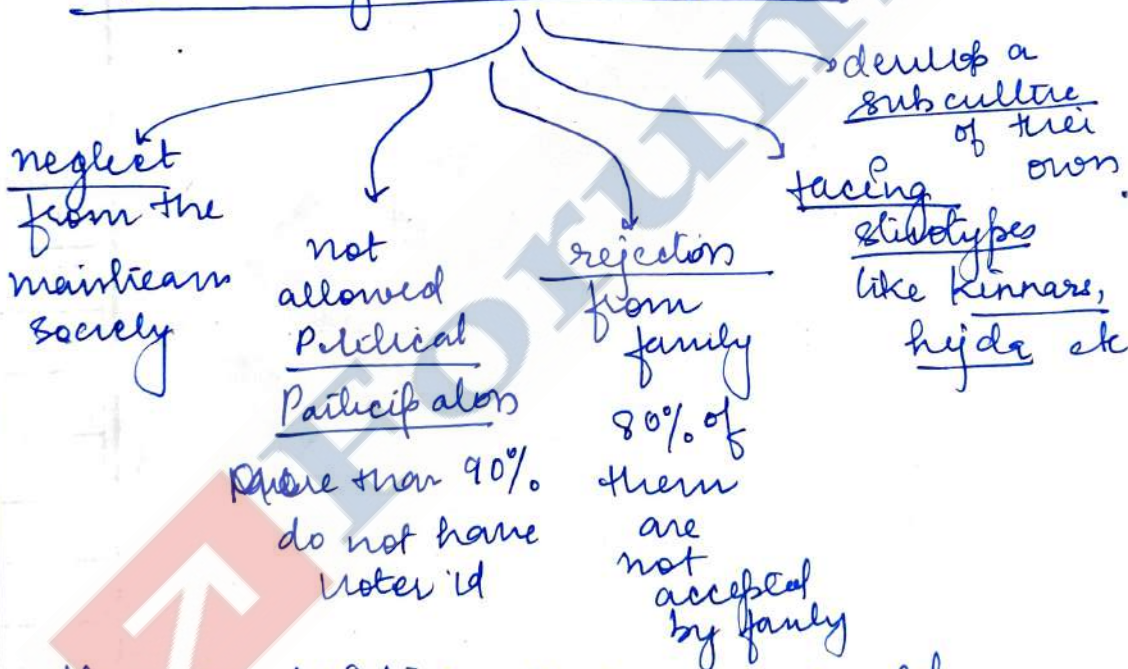 neglect
from the
mainstream
society
not
allowed
Political
Participation
more than 90%
do not have
voter id
rejection
from
family
80% of
them
are
not
accepted
by family
facing
stereotypes
like Kinnars,
hijda etc
develop a
subculture
of their
own
Forum